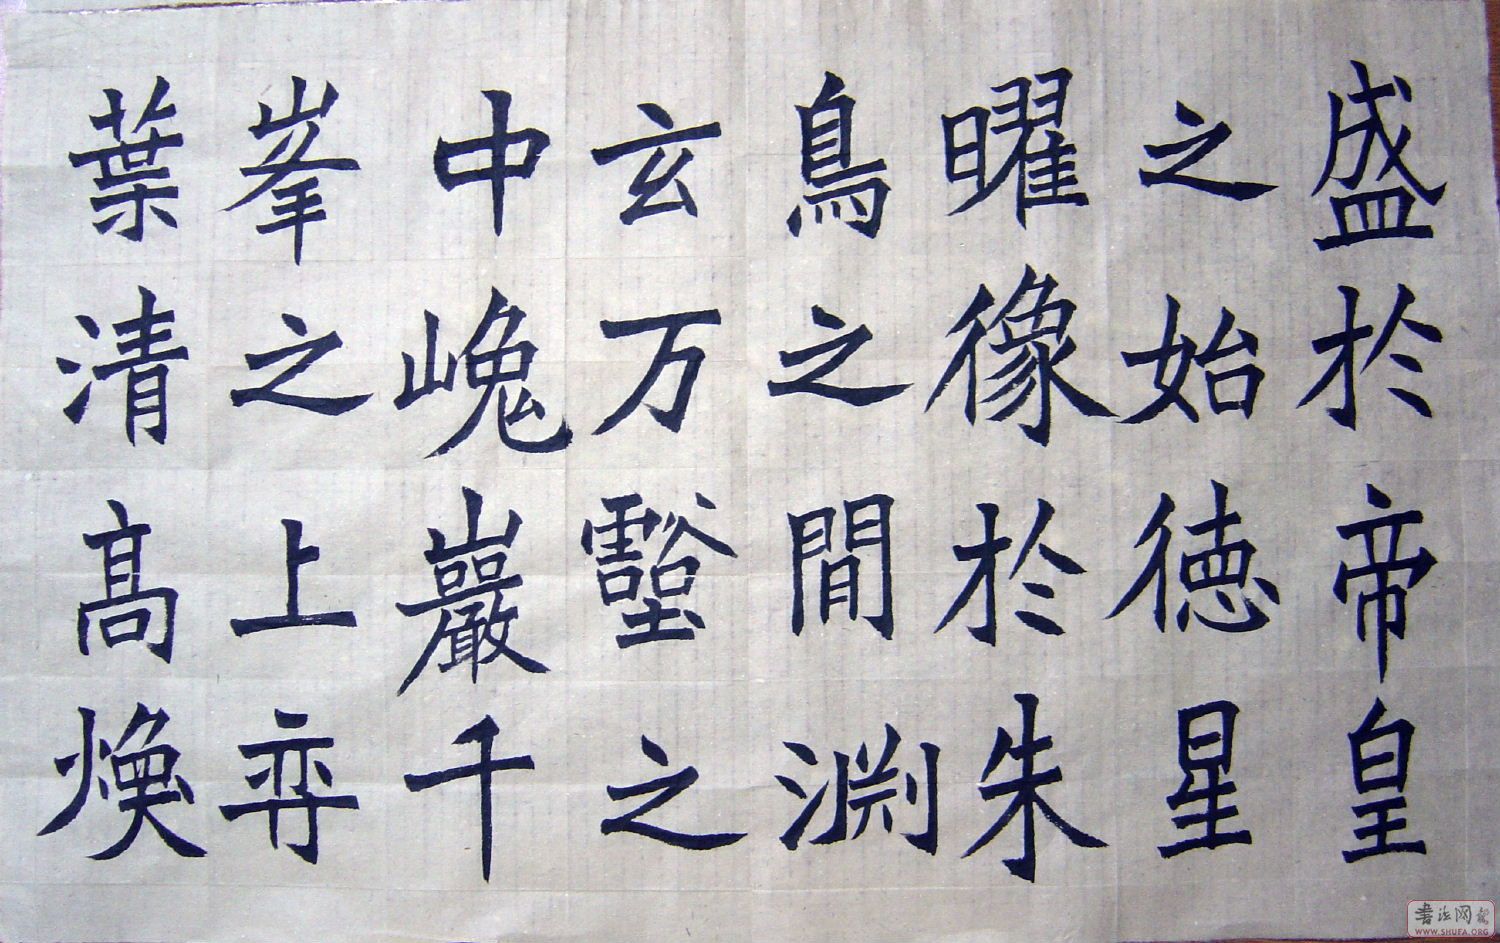 盛於帝皇
之始徳星
曜像於朱
鳥之閒渕
玄万壑之
中巉巖千
峯之上弈
葉清髙煥
书法网
WWW.SHUFA.ORG